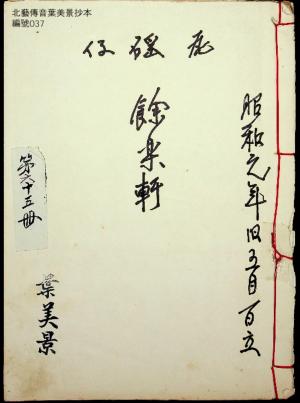 北藝傳音葉美景抄本
編號037
昭和元年旧五月百立
餘樂軒
第六十五冊
葉美景